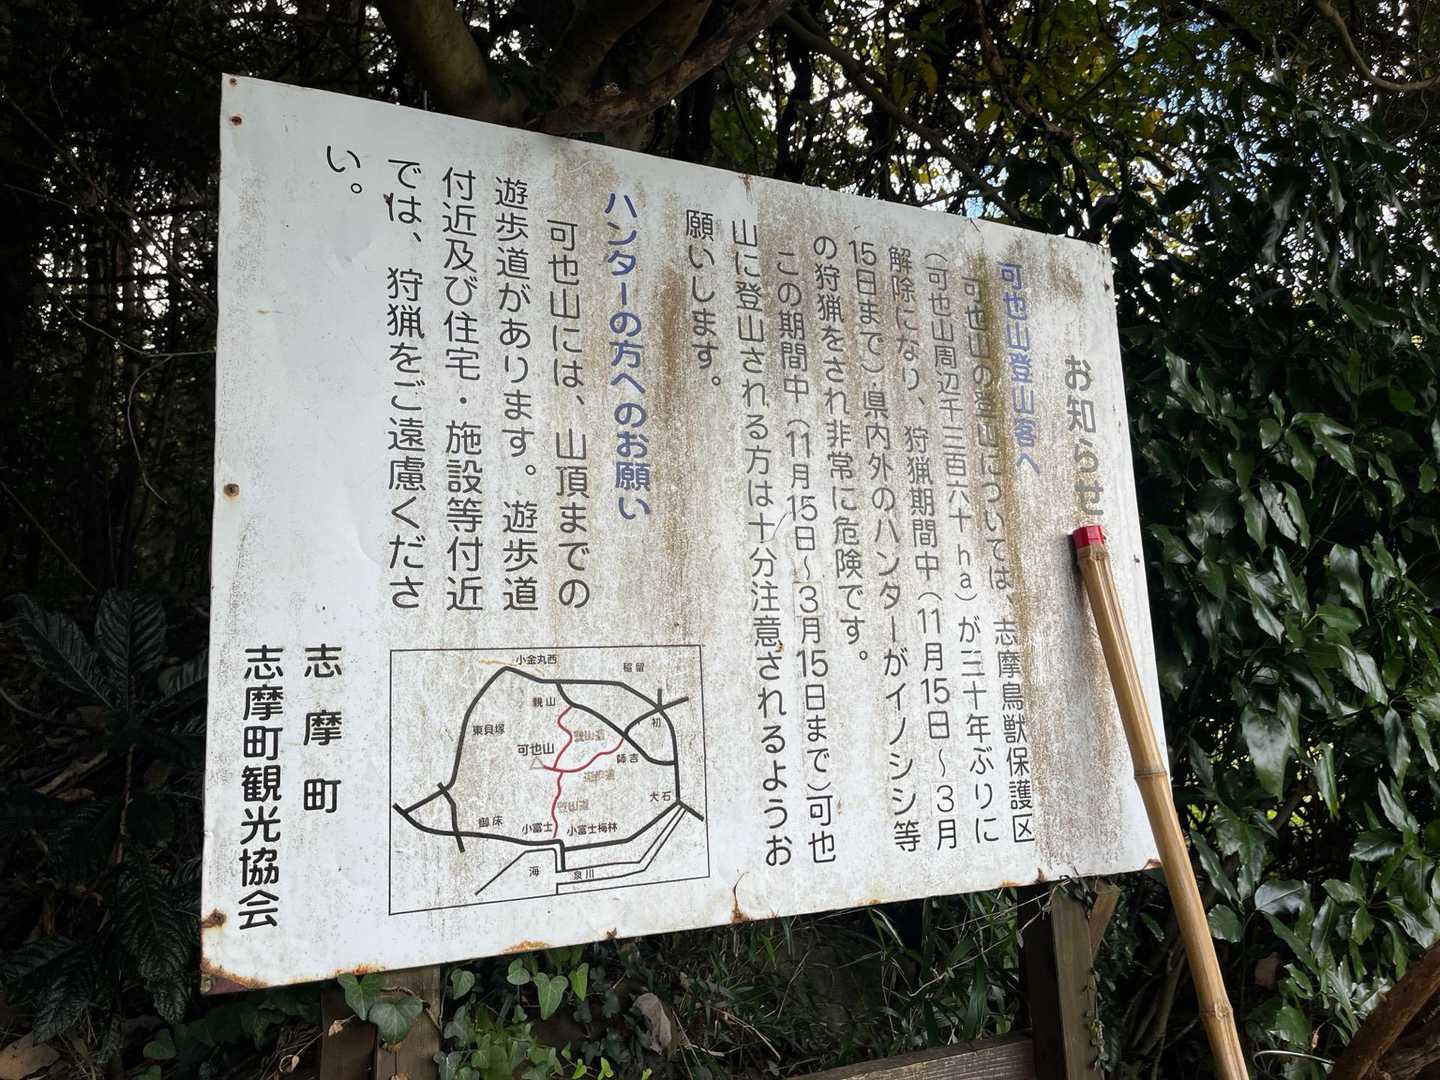 お知らせ
可也山登山客へ
可也山の登山については、志摩鳥獣保護区
(可也山周辺千三百六十ha)が三十年ぶりに
解除になり、狩猟期間中(11月15日～3月
15日まで)県内外のハンターがイノシシ等
の狩猟をされ非常に危険です。
この期間中(11月15日～3月15日まで)可也
山に登山される方は十分注意されるようお
願いします。
ハンターの方へのお願い
可也山には、山頂までの
遊歩道があります。遊歩道
付近及び住宅・施設等付近
では、狩猟をご遠慮くださ
い。
志摩町
志摩町観光協会
小金丸西
稲留
親山
初
東貝塚
登山道
可也山
師吉
遊歩道
大石
登山道
御床
小富士
小富士梅林
海
泉川